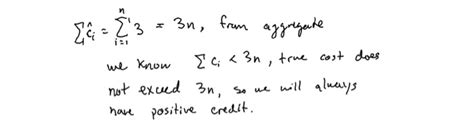 ∑ĉᵢ = ∑ᵢ₌₁ⁿ 3 = 3n, from aggregate
we know ∑ cᵢ < 3n, true cost does
not exceed 3n, so we will always
have positive credit.